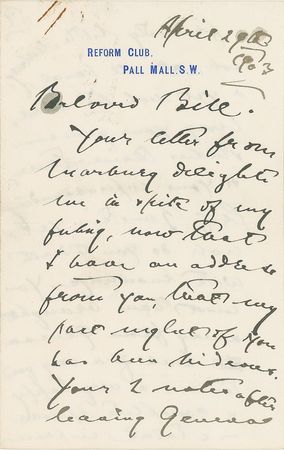 April 29th
1903
REFORM CLUB,
PALL MALL. S.W.
Beloved Bill.
Your letter from
Marburg delights
me in spite of my
feeling, now that
I have an address
from you, that my
past neglect of you
has been hideous.
Your 2 notes after
leaving Geneva